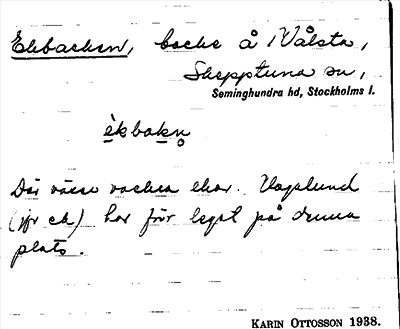 Ekbacken, backe å Vålsta,
Skepptuna sn,
Seminghundra hd, Stockholms l.
èkbakn̥
Där växa vackra ekar. Haglund
(jfr ek) har förr legat på denna
plats.
KARIN OTTOSSON 1938.